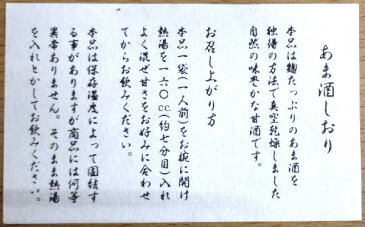 あま酒しおり
本品は麹たっぷりのあま酒を
独得の方法で真空乾燥しました
自然の味豊かな甘酒です。
お召し上がり方
本品一袋（一人前）をお椀に開け
熱湯を一六〇cc（約七分目）入れ
よく混ぜ甘さをお好みに合わせ
てからお飲みください。
本品は保存温度によって固結す
る事がありますが商品には何等
異常ありません。そのまま熱湯
を入れとかしてお飲みください。